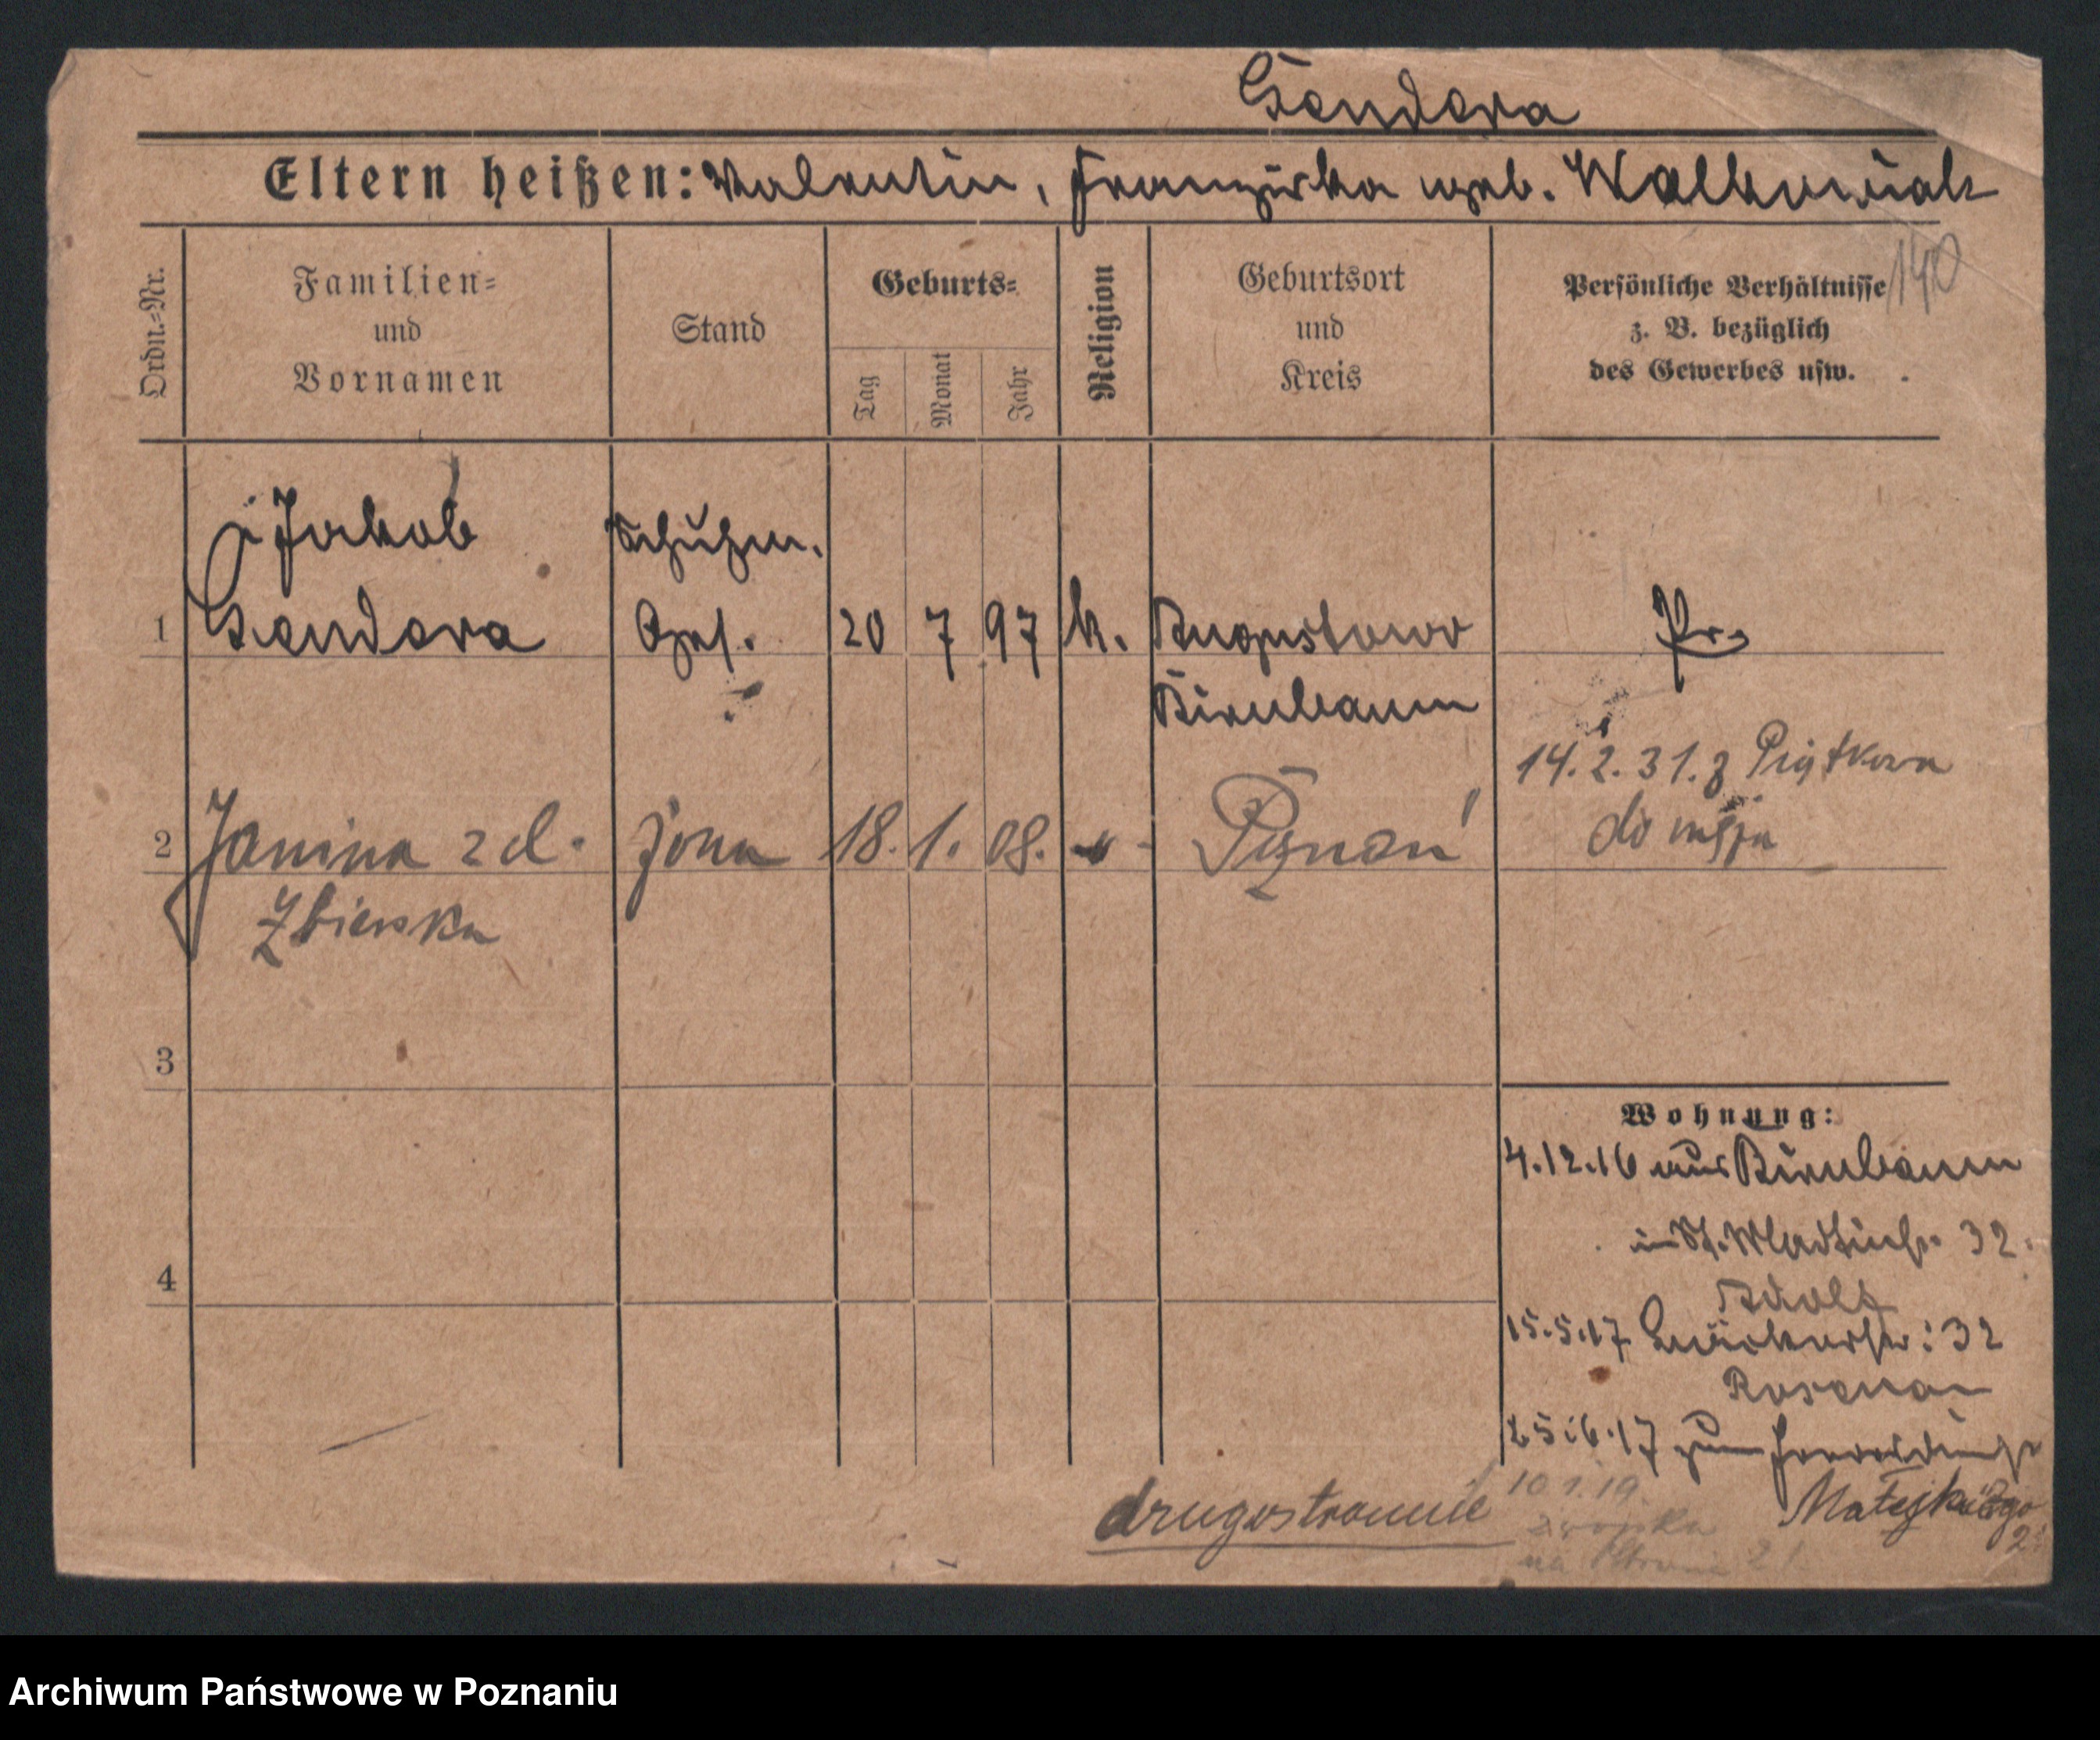 Gendera
Eltern heißen: Valentin, Franziska geb. Walkowiak
140
Ordn.-Nr.
Familien-
und
Vornamen
Stand
Geburts-
Tag
Monat
Jahr
Religion
Geburtsort
und
Kreis
Persönliche Verhältnisse
z. B. bezüglich
des Gewerbes usw.
Jakob Schuhm.
1 Gendera Gesl. 20 7 97 k. Augustowo Pr.
Birnbaum
14.2.31. z Piątkowa
2 Janina z d. żona 18. 1. 08. Poznań do męża
Zbierska
3
4
Wohnung:
4.12.16 aus Birnbaum
in St. 32.
Adolf
15.5.17 32
Rosenau
25.6.17 zum
10 1.19. Matejki
drugostronnie
z wojska
na 21
Archiwum Państwowe w Poznaniu